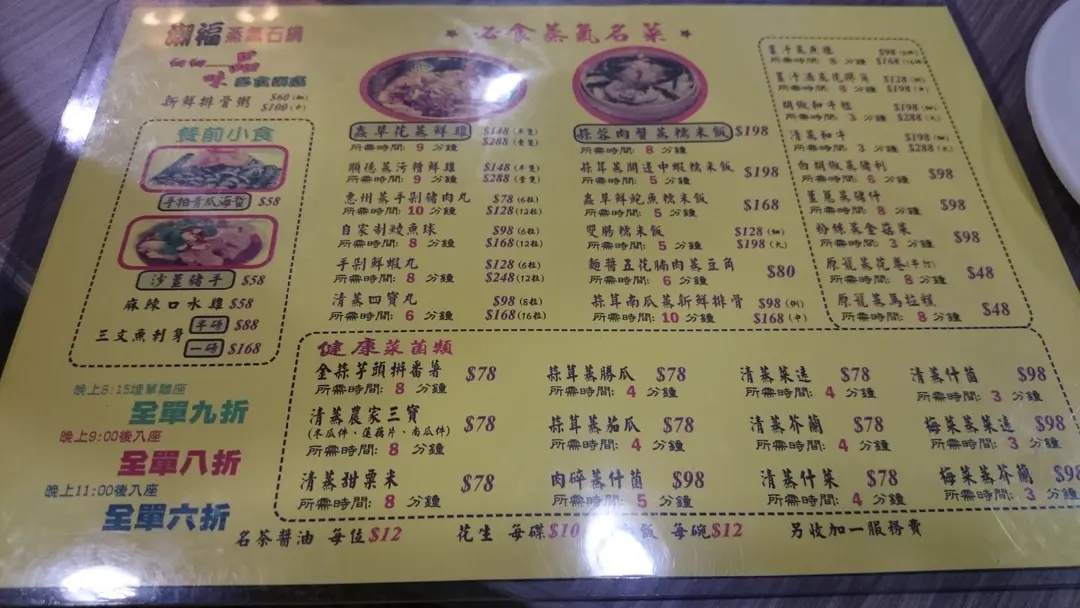 潮福蒸氣石鍋
一品
味
新鮮排骨粥 $60(細)
$100(中)
餐前小食
手拍青瓜海蜇 $58
沙薑豬手 $58
麻辣口水雞 $58
三文魚刺身 半磅 $88
一磅 $168
晚上8:15埋單離座
全單九折
晚上9:00後入座
全單八折
晚上11:00後入座
全單六折
必食蒸氣名菜
蟲草花蒸鮮雞 $148(半隻)
所需時間: 9 分鐘 $288(壹隻)
順德蒸污糟鮮雞 $148(半隻)
所需時間: 9 分鐘 $288(壹隻)
惠州蒸手剁豬肉丸 $78(6粒)
所需時間: 10 分鐘 $128(12粒)
自家制鯪魚球 $98(6粒)
所需時間: 8 分鐘 $168(12粒)
手剁鮮蝦丸 $128(6粒)
所需時間: 8 分鐘 $248(12粒)
清蒸四寶丸 $98(8粒)
所需時間: 6 分鐘 $168(16粒)
蒜蓉肉蟹蒸糯米飯 $198
所需時間: 8 分鐘
蒜茸蒸開邊中蝦糯米飯 $198
所需時間: 5 分鐘
蟲草鮮鮑魚糯米飯 $168
所需時間: 5 分鐘
雙腸糯米飯 $128(細)
所需時間: 5 分鐘 $198(大)
麵醬五花腩肉蒸豆角 $80
所需時間: 6 分鐘
蒜茸南瓜蒸新鮮排骨 $98(例)
所需時間: 10 分鐘 $168(中)
$98
所需時間: 分鐘 $168
$128(細)
所需時間: 8 分鐘 $198(中)
胡椒和牛粒 $198(細)
所需時間: 3 分鐘 $288(大)
清蒸和牛 $198(細)
所需時間: 3 分鐘 $288(大)
白胡椒蒸豬利 $98
所需時間: 6 分鐘
薑蔥蒸豬什 $98
所需時間: 8 分鐘
粉絲蒸金菇菜 $98
所需時間: 3 分鐘
原籠蒸花卷 $48
所需時間: 8 分鐘
原籠蒸馬拉糕 $48
所需時間: 8 分鐘
健康菜菌類
金蒜芋頭拼番薯 $78
所需時間: 8 分鐘
清蒸農家三寶 $78
(冬瓜件、蓮藕片、南瓜件)
所需時間: 8 分鐘
清蒸甜粟米 $78
所需時間: 8 分鐘
蒜茸蒸勝瓜 $78
所需時間: 4 分鐘
蒜茸蒸茄瓜 $78
所需時間: 4 分鐘
肉碎蒸什菌 $98
所需時間: 5 分鐘
清蒸菜遠 $78
所需時間: 4 分鐘
清蒸芥蘭 $78
所需時間: 4 分鐘
清蒸什菜 $78
所需時間: 4 分鐘
清蒸什菌 $98
所需時間: 3 分鐘
梅菜蒸菜遠 $98
所需時間: 3 分鐘
梅菜蒸芥蘭 $98
所需時間: 3 分鐘
名茶醬油 每位$12 花生 每碟$10 飯 每碗$12 另收加一服務費